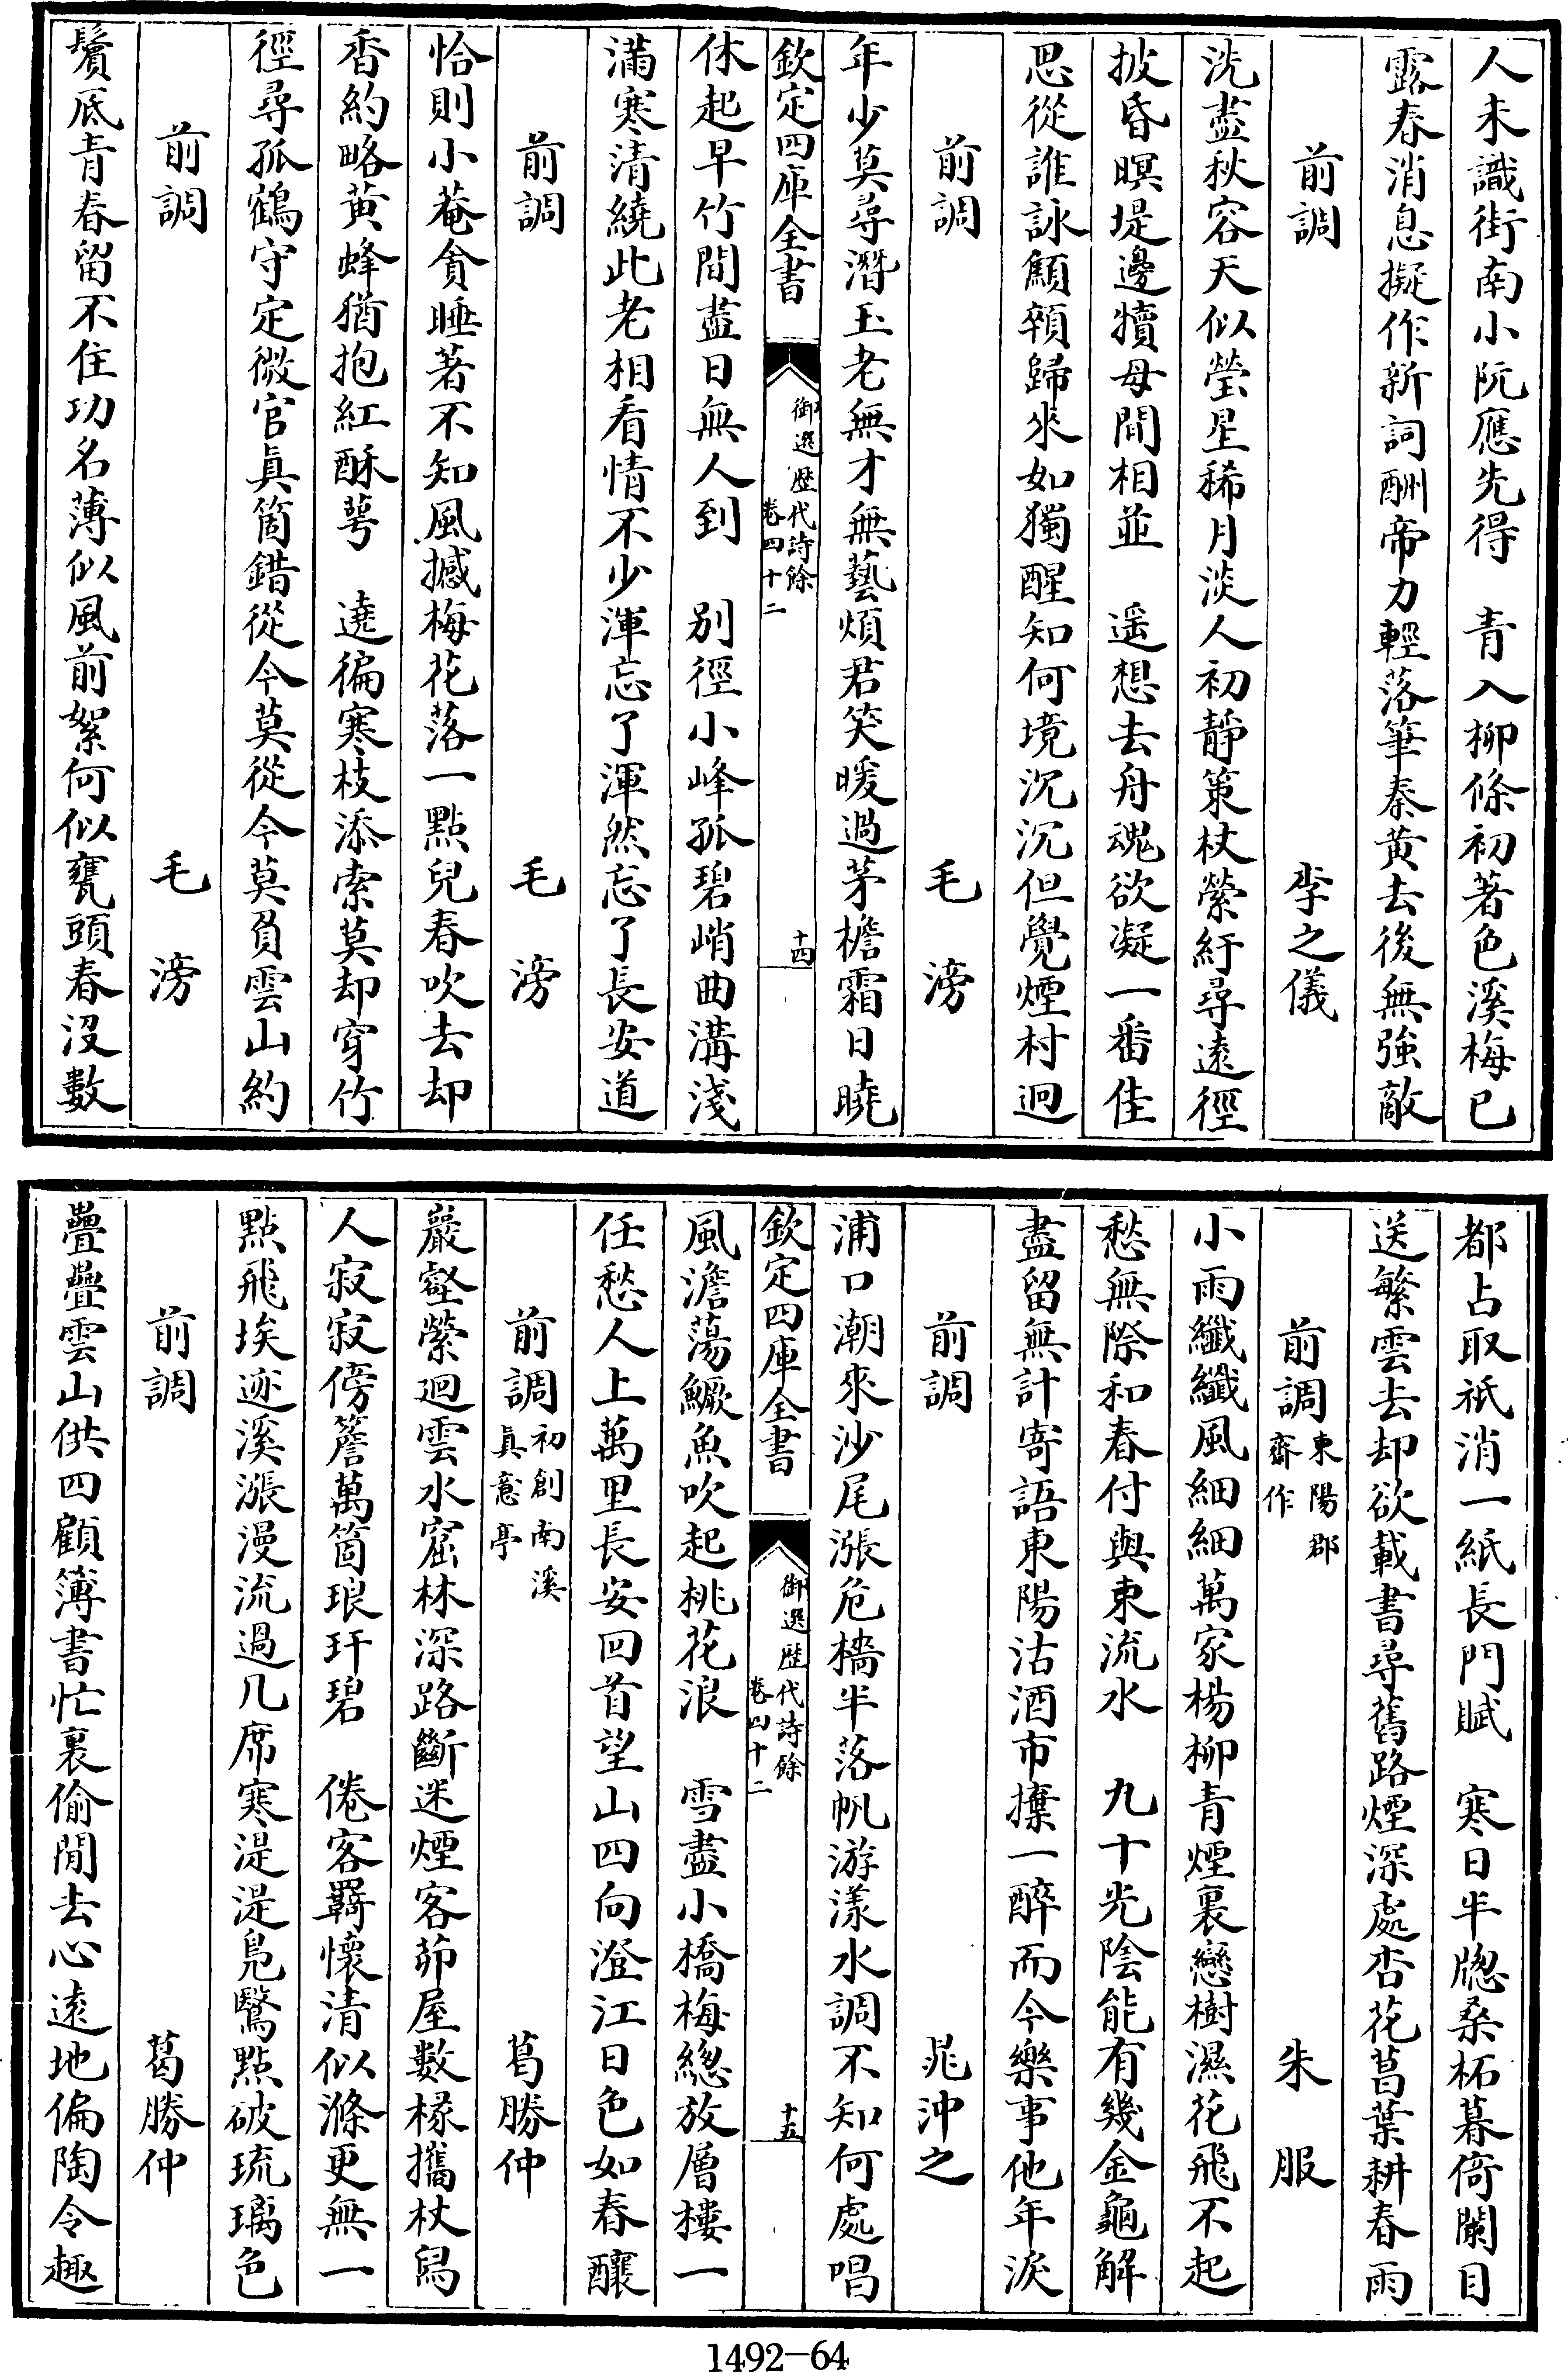 人未識街南小阮應先得　青入柳條初著色溪梅已
露春消息擬作新詞酬帝力輕落筆秦黄去後無強敵
前調　李之儀
洗盡秋容天似瑩星稀月淡人初靜策杖縈紆尋遠徑
披昏暝堤邊犢母閒相並　遥想去舟魂欲凝一番佳
思從誰詠顦顇歸來如獨醒知何境沉沉但覺煙村迥
前調　毛滂
年少莫尋潛玉老無才無藝煩君笑暖過茅檐霜日曉
欽定四庫全書　御選歷代詩餘　卷四十二　十四
休起早竹間盡日無人到　别徑小峰孤碧峭曲溝淺
滿寒清繞此老相看情不少渾忘了渾然忘了長安道
前調　毛滂
恰則小菴貪睡著不知風撼梅花落一點兒春吹去却
香約略黄蜂猶抱紅酥萼　遶徧寒枝添索莫却穿竹
徑尋孤鶴守定微官真箇錯從今莫從今莫負雲山約
前調　毛滂
鬢底青春留不住功名薄似風前絮何似甕頭春没數
都占取祇消一紙長門賦　寒日半牕桑柘暮倚闌目
送繁雲去却欲載書尋舊路煙深處杏花菖葉耕春雨
前調 東陽郡齋作　朱服
小雨纖纖風細細萬家楊柳青煙裏戀樹濕花飛不起
愁無際和春付與東流水　九十光陰能有幾金龜解
盡留無計寄語東陽沽酒市拚一醉而今樂事他年淚
前調　晁沖之
浦口潮來沙尾漲危檣半落帆游漾水調不知何處唱
欽定四庫全書　御選歷代詩餘　卷四十二　十五
風澹蕩鱖魚吹起桃花浪　雪盡小橋梅總放層樓一
任愁人上萬里長安回首望山四向澄江日色如春釀
前調 初創南溪真意亭　葛勝仲
巖壑縈迴雲水窟林深路斷迷煙客茆屋數椽攜杖舄
人寂寂傍簷萬箇琅玕碧　倦客羇懷清似滌更無一
點飛埃迹溪漲漫流過几席寒湜湜鳧鷖點破琉璃色
前調　葛勝仲
疊疊雲山供四顧簿書忙裏偷閒去心遠地偏陶令趣
1492-64